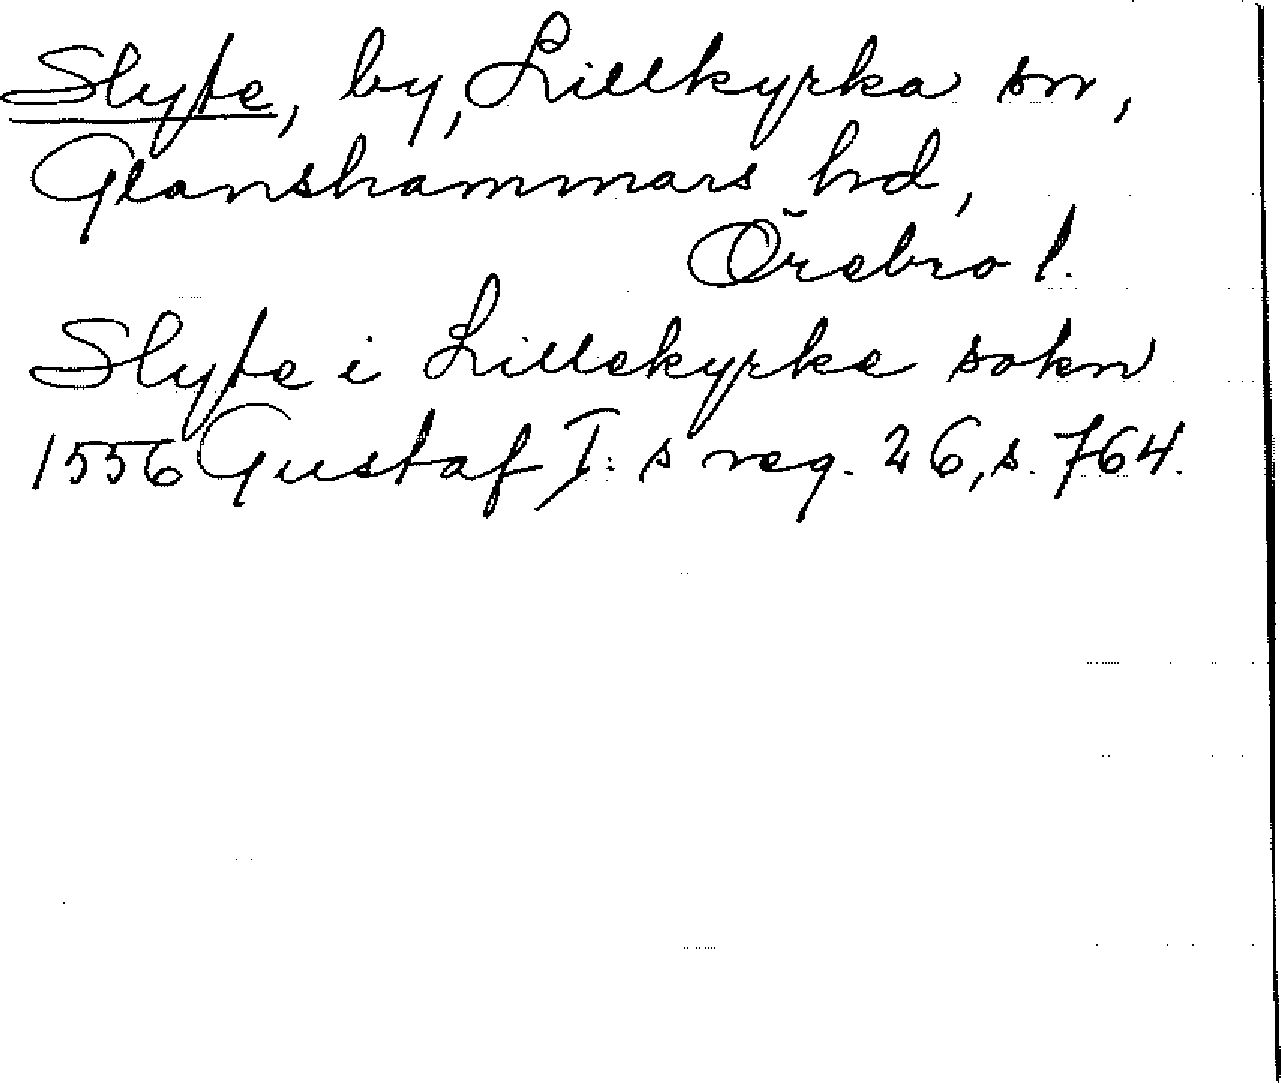 Slyte, by, Lillkyrka sn,
Glanshammars hd,
Örebro l.
Slyte i Lillekyrke sokn
1556 Gustaf I:s reg. 26, s. 764.